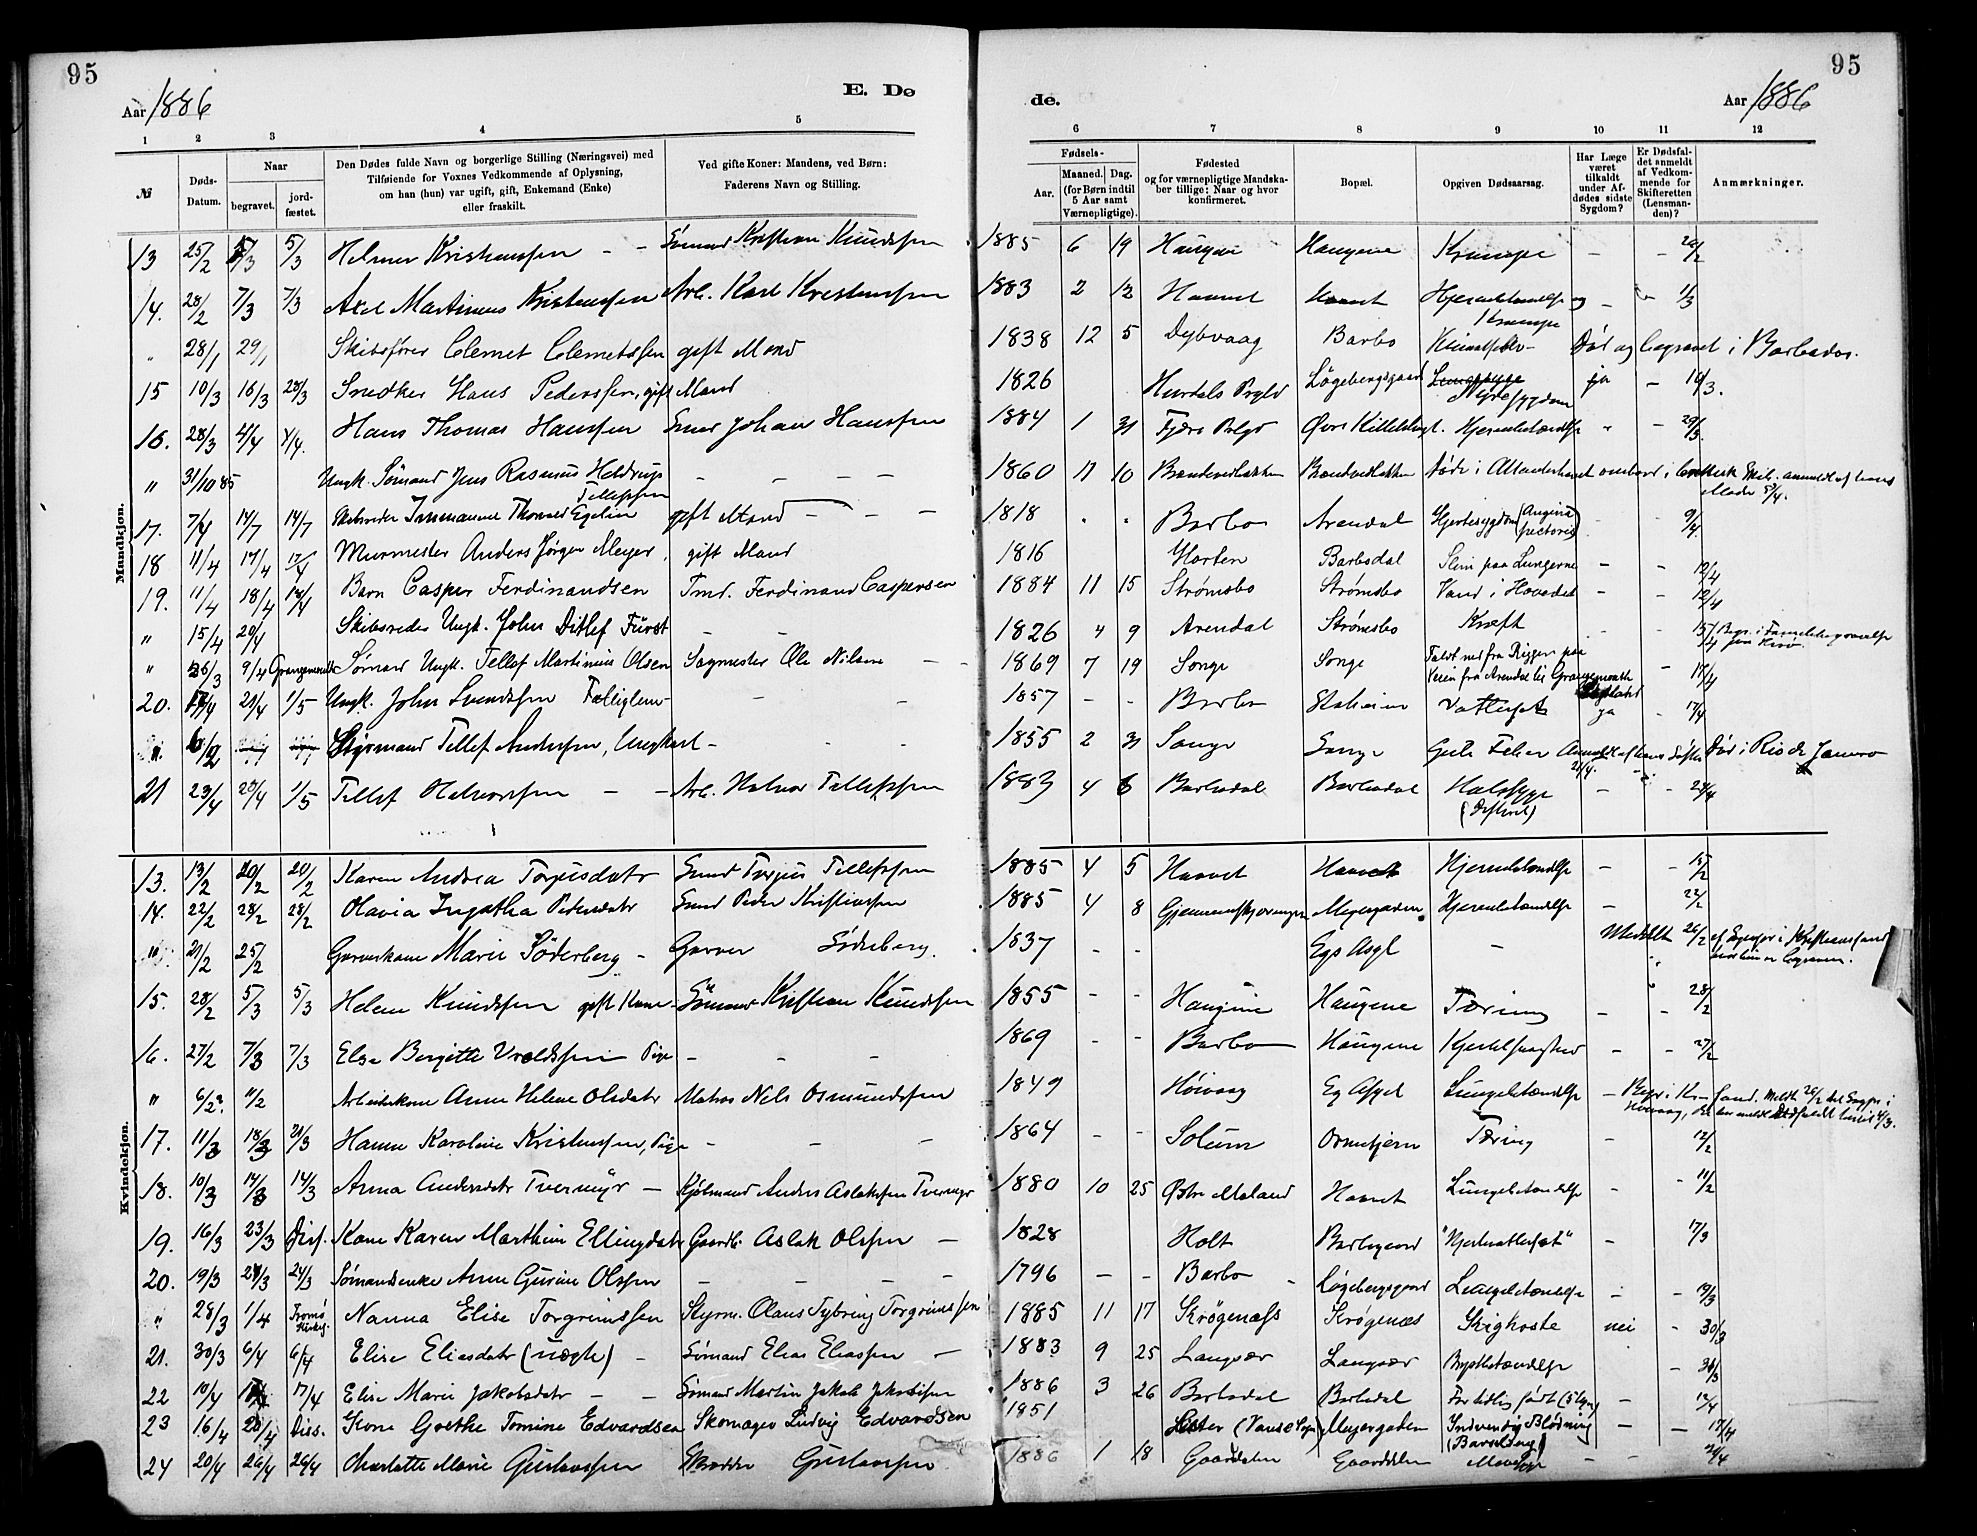 95
95
Aar 1886
E. Dø
de.
Aar 1886
1 2 3 4 5
6 7 8 9 10 11 12
№
Døds-Datum.
Naar
begravet.
jord-fæstet.
Den Dødes fulde Navn og borgerlige Stilling (Næringsvei) med
Tilføiende for Voxnes Vedkommende af Oplysning,
om han (hun) var ugift, gift, Enkemand (Enke)
eller fraskilt.
Ved gifte Koner: Mandens, ved Børn:
Faderens Navn og Stilling.
Fødsels-
Aar.
Maaned. Dag.
(for Børn indtil
5 Aar samt
Værnepligtige).
Fødested
og for værnepligtige Mandska-
ber tillige: Naar og hvor
konfirmeret.
Bopæl.
Opgiven Dødsaarsag.
Har Læge
været
tilkaldt
under Af-
dødes sidste
Sygdom?
Er Dødsfal-
det anmeldt
af Vedkom-
mende for
Skifteretten
(Lensman-
den)?
Anmærkninger.
Mandkjøn.
13 25/2 5/3 5/3 Helmer Kristianssen - - Sømand Kristian Knudssen 1885 6 19 Haugene Haugene Krampe - - 26/2
14. 28/2 7/3 7/3 Axel Martinius Kristenssen Arb. Karl Kristenssen 1883 2 12 Haavet Haavet Hjernebetændelse og Krampe - 1/3
" 28/1 29/1 Skibsfører Clemet Clemetssen gift Mand 1838 12 5 Dybvaag Barbo Død og begravet i Barbados.
15 10/3 16/3 23/3 Snedker Hans Pederssen, gift Mand 1826 Hurdals Prgld Løgebergsgaard Nyresygdom ja - 16/3.
16. 28/3 4/4 4/4. Hans Thomas Hanssen Smd Johan Hanssen 1884 1 31 Fjære Prgld Øvre Hjernebetændelse " - 29/3.
" 31/10 85 Ungk. Sømand Jens Rasmus Heldrup Tellefssen - - - - 1860 11 10 døde i Atlanterhavet ombord i
17. 7/4 14/7 14/7 Skibsreder Immanuel Thomas Egelin gift Mand - - - 1818 " " Barbo Arendal Hjertesygdom (Angina pectoris) - - 9/4
18 11/4 17/4 17/4 Murmester Anders Jørgen Meyer, gift Mand 1816 Horten Barbodal Slim paa Lungerne - - 12/4
19. 11/4 18/4 18/4 Barn Casper Ferdinandsen Tmd. Ferdinand Caspersen 1884 11 15 Strømsbo Strømsbo Vand i Hovedet - - 12/4
" 15/4 20/4 Skibsreder Ungk. John Ditlef Fürst - - 1826 4 9 Arendal Strømsbo Kræft - - 15/4 Begr. i Familiebegravelse
" 26/3 9/4 Grangemouth Sømand Ungk. Tellef Martinius Olsen Sagmester Ole Nilsen - - 1869 7 19 Songe Songe Faldt ned fra Riggen paa Veien fra Arendal til Grangemouth - 17/4
20. 17/4 21/4 1/5 Ungk. John Svendssen Fattiglem - - - 1857 - - Barbo Vattersot ja - 17/4
" 6/2 Styrmand Tellef Anderssen, Ungkarl - - - 1855 2 31 Songe Songe Gule Feber Anmeldt af hans 21/4. Død i Rio de Janeiro
21 23/4 28/4 1/5 Tellef Halvorssen - - Arb. Halvor Tellefssen 1883 4 6 Barbodal Barbodal Halssyge - - 24/4
Kvindekjøn.
13. 13/2 20/2 20/2 Karen Andrea Torjusdatr Smd Torjus Tellefssen 1885 4 5 Haavet Haavet Hjernebetændelse - - 15/2
14. 22/2 28/2 28/2 Olavia Ingatha Pedersdatr Smd Peder Kristianssen 1885 4 8 Meyergaden Hjernebetændelse - 22/2
" 21/2 25/2 Garverkone Marie Söderberg - Garver Söderberg. 1837 - - Egs Asyl - Meddelt 26/2 af Sognepr i Kristianssand
15. 28/2 5/3 5/3 Helene Knudssen gift Kone Sømand Kristian Knudssen 1855 - - Haugene Haugene Tæring - - 28/2
16. 27/2 7/3 7/3 Else Birgitte Vroldssen Pige - - - 1869 - - Barbo Haugene Kjertelsvaghed - - 27/2
" 6/2 11/2 Arbeiderkone Anne Helene Olsdatr Matros Nels Osmundssen 1849 Høivaag Eg Asyl Lungebetændelse -
17. 11/3 18/3 21/3 Hanne Karoline Kristenssen, Pige - - - 1864 - - Solum Ormetjern Tæring - 12/2
18. 10/3 14/3 14/3 Anna Andersdatr Tvermyr - Kjølmand Anders Aslakssen Tvermyr 1880 10 25 Østre Moland Haavet Lungebetændelse - - 11/2
19. 16/3 23/3 Diss. Kone Karen Marthine Ellingsdatr Gaardb. Aslak Olssen - 1828 Holt Barbogaard "Hjertevattersot" - 17/3
20. 19/3 24/3 24/3 Sømandsenke Anne Gurine Olssen - - - - 1796 - - Barbo - Løgebergsgaard Lungebetændelse - - 19/3
" 28/3 1/4 Tromø Kirkeg. Nanna Elise Torgrimssen Styrm. Olaus Tybring Torgrimssen 1885 11 17 Krøgenæss Krøgenæs Kighoste nei - 30/3
21. 30/3 6/4 6/4 Elise Eliasdatr (uægte) - Sømand Elias Eliassen - 1883 9 25 Langsæv Langsæv Brystbetændelse - 30/3
22 10/4 17/4 17/4 Elise Marie Jakobsdatr - - Sømand Martin Jakob Jakobssen 1886 3 26 Barbodal Barbodal For tidlig født - 12/4
23 16/4 21/4 Diss. Kone Grethe Tomine Edvardsen Skomager Ludvig Edvardsen 1851 Lister (Vanse Sogn) Meyergaden Indvendig Blødning (Barselseng) - - 17/4
24 20/4 26/4 26/4 Charlotte Marie Gustavssen Skrædder Gustavssen 1886 1 18 Gaarddalen Gaarddalen - - 20/4